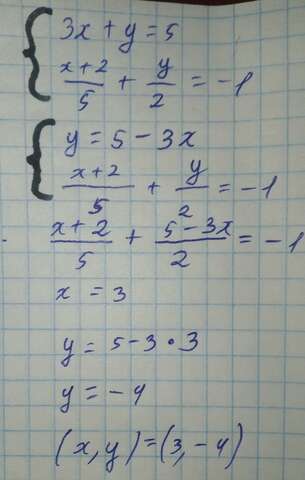 3x + y = 5
x+2/5 + y/2 = -1
y = 5 - 3x
x+2/5 + y/2 = -1
x+2/5 + 5-3x/2 = -1
x = 3
y = 5-3 • 3
y = -4
(x, y) = (3, -4)